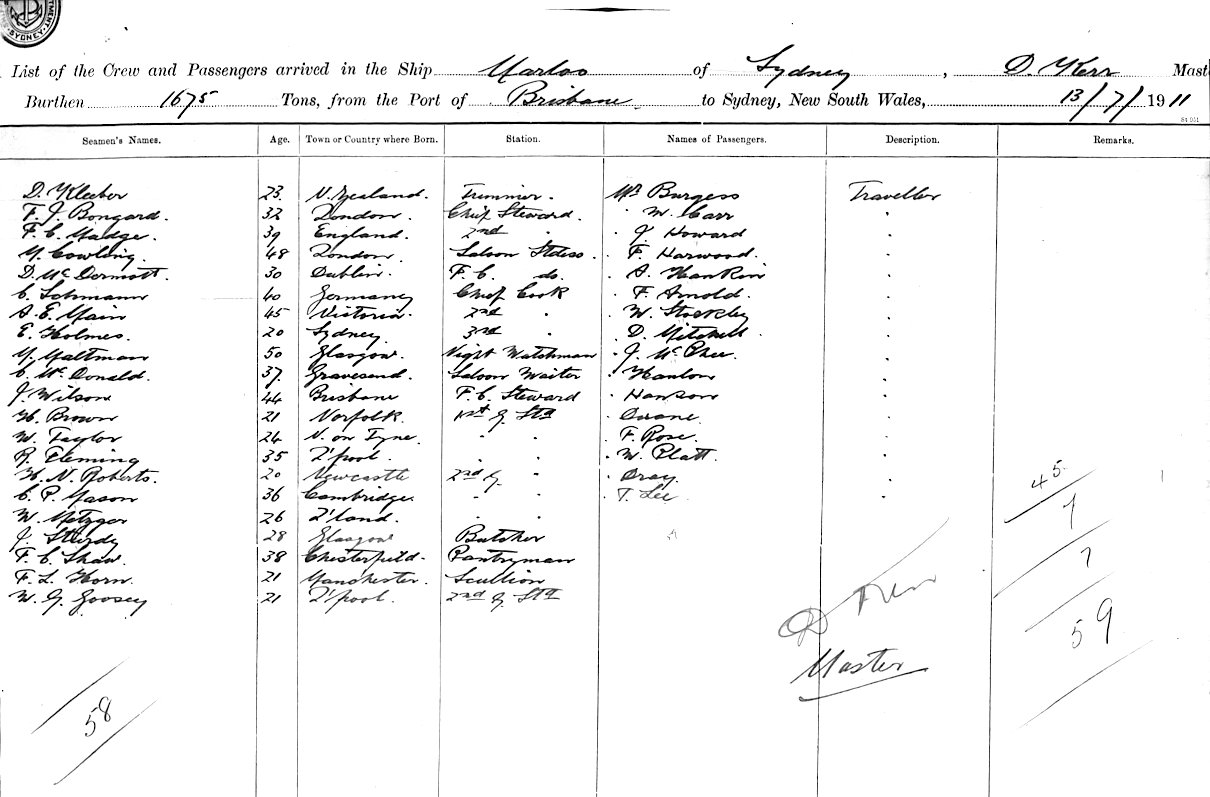 SYDNEY
List of the Crew and Passengers arrived in the Ship Marloo of Sydney, D. Kerr Mast
Burthen 1675 Tons, from the Port of Brisbane to Sydney, New South Wales, 13/7/1911
Seamen's Names. Age. Town or Country where Born. Station. Names of Passengers. Description. Remarks.
D. Kleeber 23. N. Zealand. Trimmer. Mr Burgess Traveller
F. J. Bongard. 32 London. Chief Steward. " W. Carr "
F. C. Madge. 39 England. 2nd " " J. Howard "
M. Cowling. 48 London. Saloon Stdess. " F. Harwood. "
D. McDermott. 30 Dublin. F. C. do. " A. Hankin "
C. Lohmann 40 Germany Chief Cook " F. Arnold. "
A. E. Main 45 Victoria. 2nd " " W. Stockley "
E. Holmes. 20 Sydney. 3rd " " D. Mitchell. "
M. Maltman 50 Glasgow. Night Watchman " J. McPhee. "
C. McDonald. 37. Gravesend. Saloon Waiter " Hanlon "
J. Wilson 44 Brisbane F. C. Steward " Hanson "
H. Brown 21 Norfolk. " "
W. Taylor 24 N. on Tyne. " " " F. Rose. "
R. Fleming 35 L'pool. " " " W. Platt. "
H. N. Roberts. 20 Newcastle 2nd G. " " "
C. P. Mason 36 Cambridge. " " " T. Lee "
W. Metzger 26 " "
J. 28 Glasgow Butcher
F. C. Shaw. 38 Chesterfield. Pantryman
F. L. Horn. 21 Manchester. Scullion
W. G. Goosey 21 L'pool. 2nd G. Std
45
7
7
59
D Kerr
Master
58